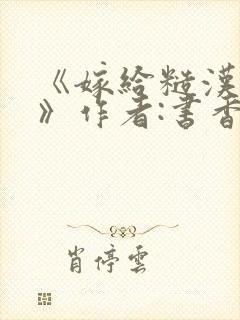 《嫁给糙漢
》作者:書香
肖停雲